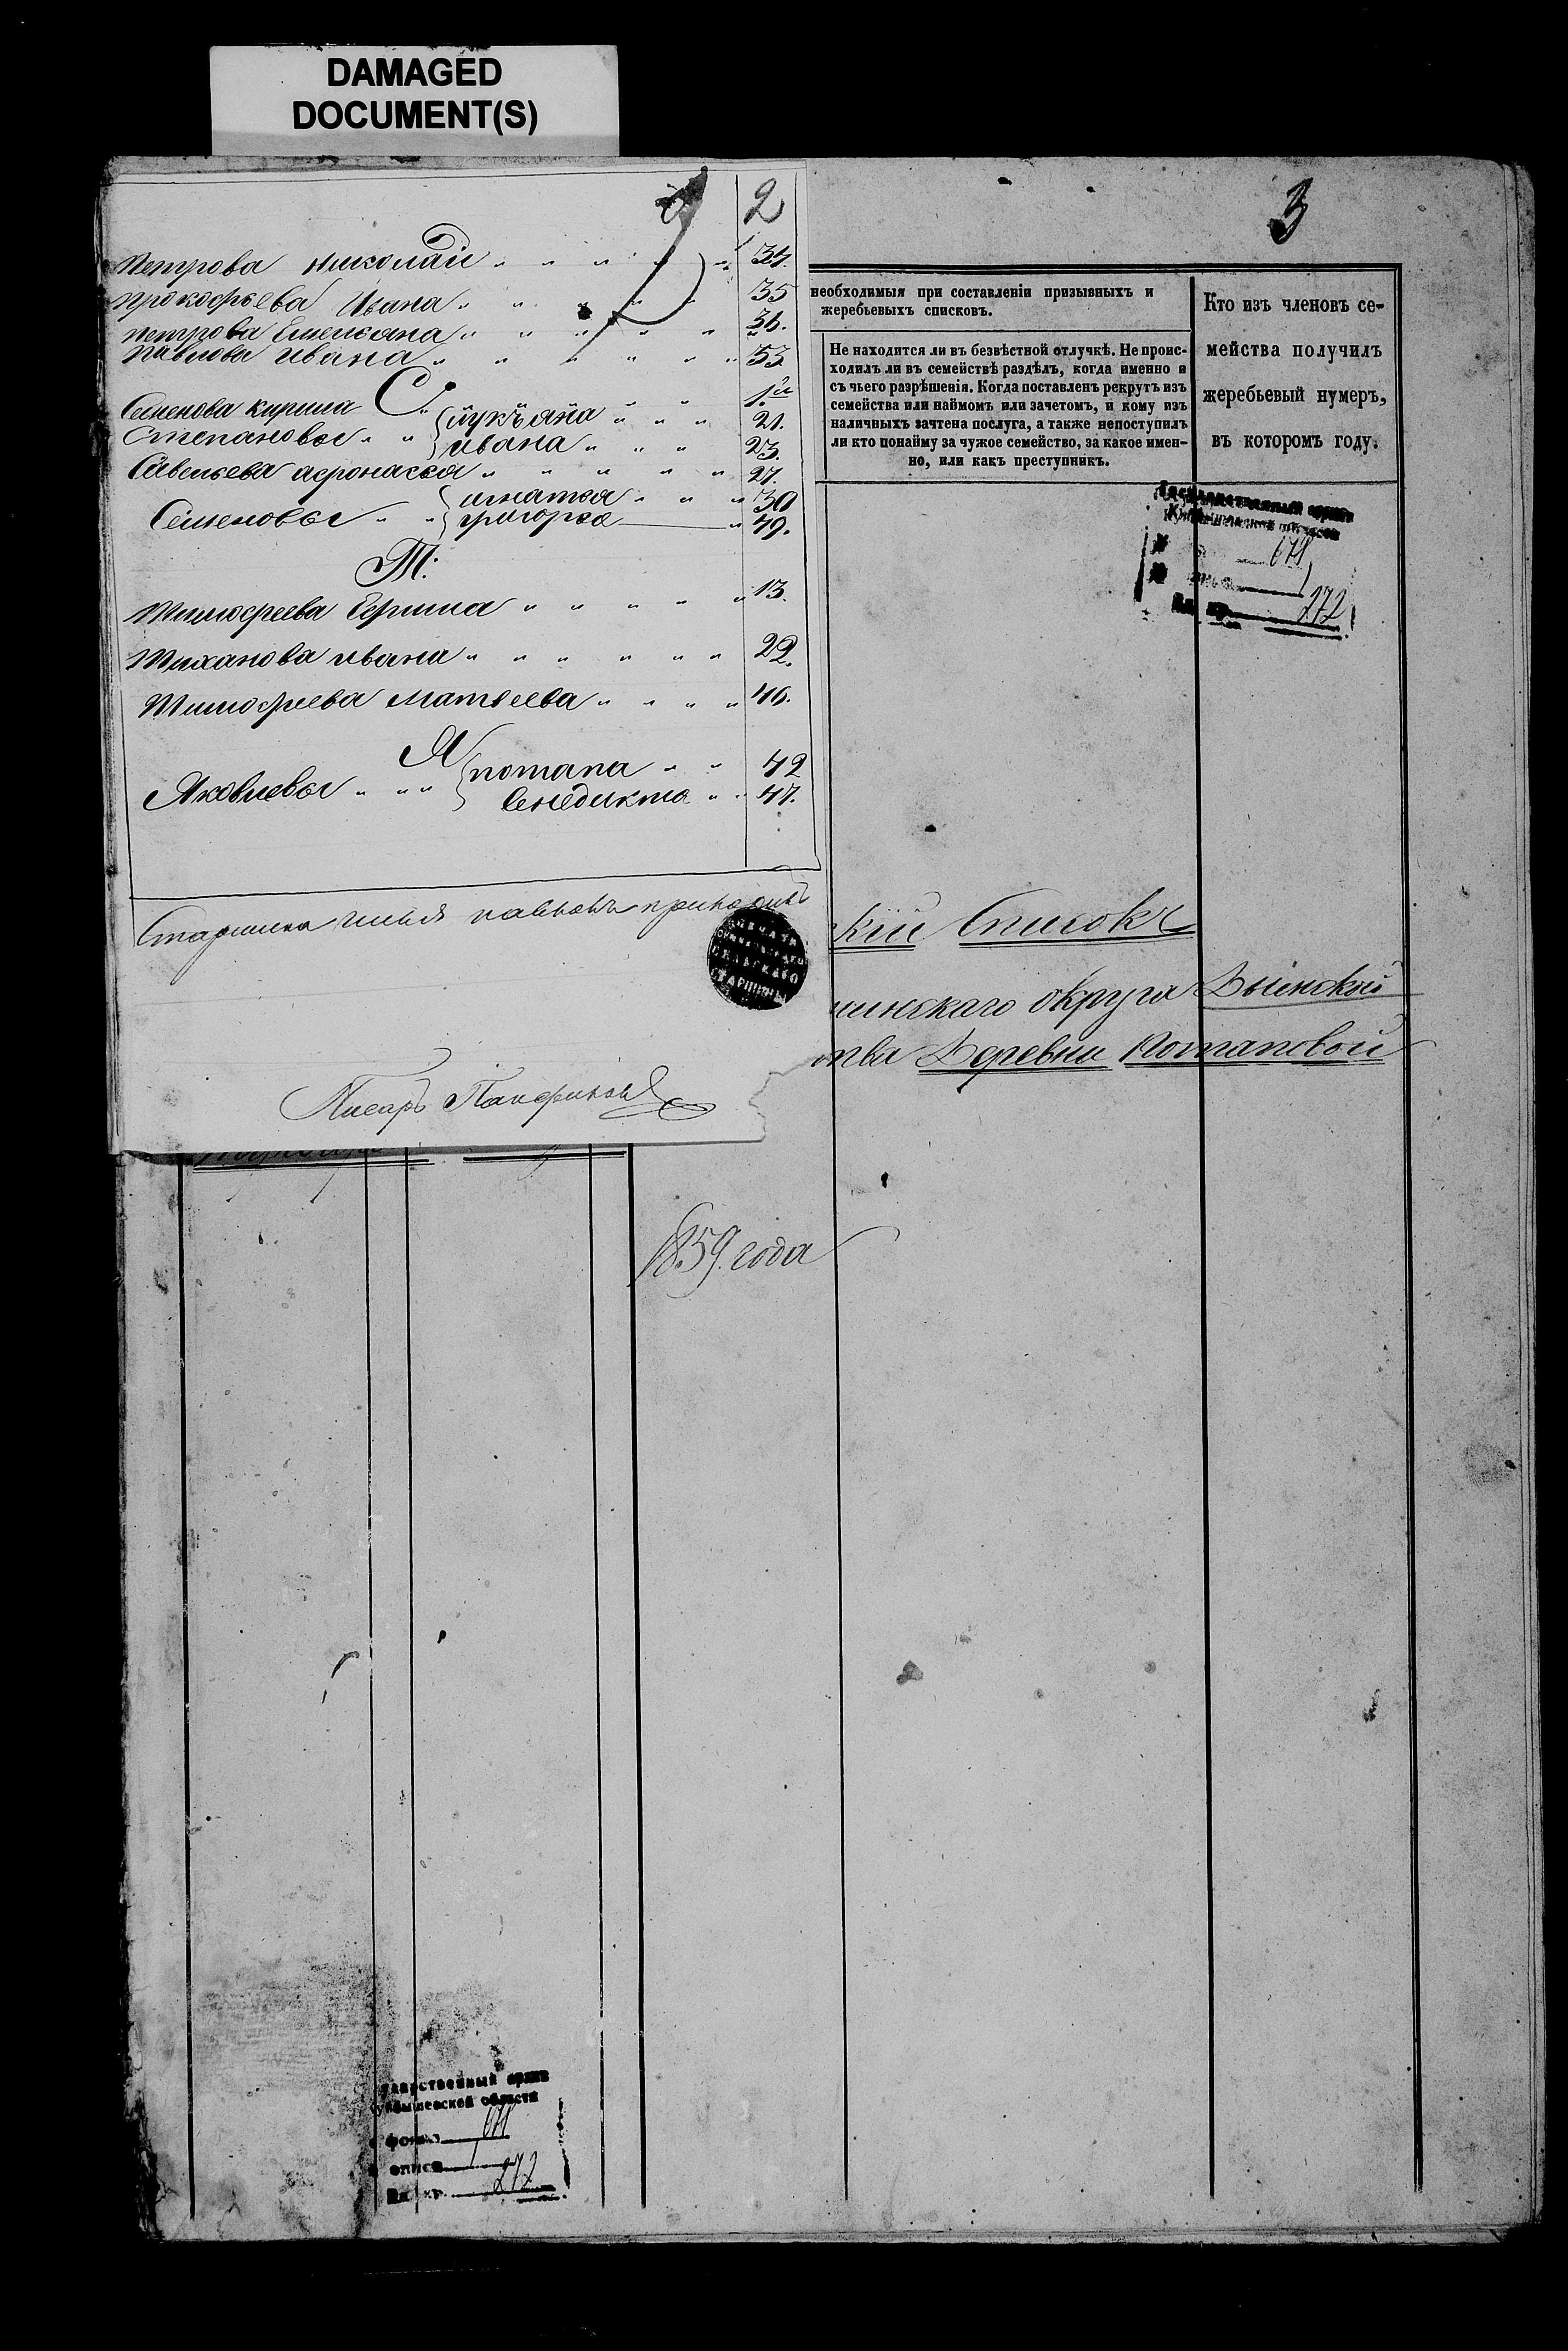 DAMAGED
DOCUMENT(S)
2
Петрова Николай 34.
Прокофьева Ивана 35
Петрова Емельяна 36.
Павлова Ивана 53
С.
Семенова кирила 1й
Степановы Лукъяна 21.
ивана 23.
Савельева афонасья 27.
Семеновы игнатья 30
григорья 49.
Т.
Тимофеева Ефима 13.
Тиханова ивана 22.
Тимофеева Матвеева 46.
Я
Яковлевы потапа 42
Венедикта 47.
Старшина
ПЕЧАТЬ
СЕЛЬСКАГО
СТАРШИНЫ
Писарь Панфилов
3
необходимыя при составленіи призывныхъ и
жеребьевыхъ списковъ.
Не находится ли въ безвѣстной отлучкѣ. Не проис-
ходилъ ли въ семействѣ раздѣлъ, когда именно и
съ чьего разрѣшенія. Когда поставленъ рекрутъ изъ
семейства или наймомъ или зачетомъ, и кому изъ
наличныхъ зачтена послуга, а также непоступилъ
ли кто понайму за чужое семейство, за какое имен-
но, или какъ преступникъ.
Кто изъ членовъ се-
мейства получилъ
жеребьевый нумеръ,
въ которомъ году.
671
1
272
кій Списокъ
инскаго округа
тва Деревни Потаповой
1859. года
дарственный архив
уйбышевской области
фонд 671
описи 1
Ед. хр. 272